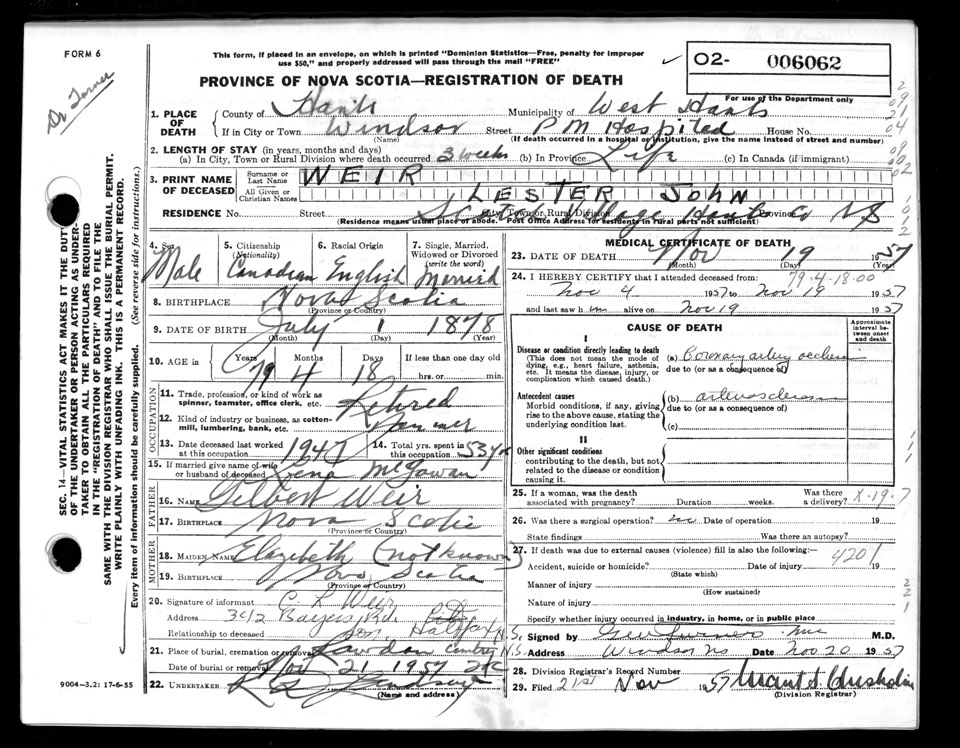 FORM 6
This form, if placed in an envelope, on which is printed "Dominion Statistics—Free, penalty for improper
use $50," and properly addressed will pass through the mail "FREE"
02- 006062
For use of the Department only
PROVINCE OF NOVA SCOTIA—REGISTRATION OF DEATH
Dr Turner
SEC. 14—VITAL STATISTICS ACT MAKES IT THE DUTY
OF THE UNDERTAKER OR PERSON ACTING AS UNDER-
TAKER TO OBTAIN ALL THE PARTICULARS REQUIRED
IN THE "REGISTRATION OF DEATH" AND TO FILE THE
SAME WITH THE DIVISION REGISTRAR WHO SHALL ISSUE THE BURIAL PERMIT.
WRITE PLAINLY WITH UNFADING INK. THIS IS A PERMANENT RECORD.
Every item of information should be carefully supplied. (See reverse side for instructions.)
1. PLACE OF DEATH
County of Hants Municipality of West Hants
If in City or Town Windsor Street P M Hospital House No.
(Name) (If death occurred in a hospital or institution, give the name instead of street and number)
2. LENGTH OF STAY (in years, months and days)
(a) In City, Town or Rural Division where death occurred 3 weeks (b) In Province Life (c) In Canada (if immigrant)
3. PRINT NAME OF DECEASED
Surname or Last Name WEIR
All Given or Christian Names LESTER JOHN
RESIDENCE No. Street Village Hants Co NS
City, Town or Rural Division Province
(Residence means usual place of abode. Post Office Address for residents in rural parts not sufficient)
4. Sex 5. Citizenship (Nationality) 6. Racial Origin 7. Single, Married, Widowed or Divorced (write the word)
Male Canadian English Married
8. BIRTHPLACE Nova Scotia
(Province or Country)
9. DATE OF BIRTH July 1 1878
(Month) (Day) (Year)
10. AGE in Years Months Days If less than one day old
79 4 18 hrs. or min.
OCCUPATION
11. Trade, profession, or kind of work as spinner, teamster, office clerk, etc. Retired
12. Kind of industry or business, as cotton-mill, lumbering, bank, etc. Farmer
13. Date deceased last worked at this occupation 1947 14. Total yrs. spent in this occupation 53 yrs
15. If married give name of wife or husband of deceased Lena McGowan
FATHER
16. NAME Gilbert Weir
17. BIRTHPLACE Nova Scotia
(Province or Country)
MOTHER
18. MAIDEN NAME Elizabeth (not known)
19. BIRTHPLACE Nova Scotia
(Province or Country)
20. Signature of informant C L Weir
Address 3412 Bayers Rd. Halifax N.S.
Relationship to deceased Son
21. Place of burial, cremation or removal Rawdon Cemetry N.S.
Date of burial or removal Nov 21 1957
22. UNDERTAKER
(Name and address)
9004—3.2: 17-6-55
MEDICAL CERTIFICATE OF DEATH
23. DATE OF DEATH Nov 19 1957
(Month) (Day) (Year)
24. I HEREBY CERTIFY that I attended deceased from: 79-4-18-00
Nov 4 1957 to Nov 19 1957
and last saw him alive on Nov 19 1957
CAUSE OF DEATH
Approximate interval between onset and death
I
Disease or condition directly leading to death (a) Coronary artery occlusion
(This does not mean the mode of dying, e.g., heart failure, asthenia, etc. It means the disease, injury, or complication which caused death.)
due to (or as a consequence of)
Antecedent causes (b) arteriosclerosis
Morbid conditions, if any, giving rise to the above cause, stating the underlying condition last.
due to (or as a consequence of)
(c)
II
Other significant conditions
contributing to the death, but not related to the disease or condition causing it.
25. If a woman, was the death associated with pregnancy? Duration weeks. Was there a delivery? X-19-7
26. Was there a surgical operation? no Date of operation 19
State findings Was there an autopsy?
27. If death was due to external causes (violence) fill in also the following:— 4201
Accident, suicide or homicide? Date of injury 19
(State which)
Manner of injury
(How sustained)
Nature of injury
Specify whether injury occurred in industry, in home, or in public place
Signed by Geo Turner M.D.
Address Windsor NS Date Nov 20 1957
28. Division Registrar's Record Number
29. Filed 21st Nov 1957 Chisholm
(Division Registrar)